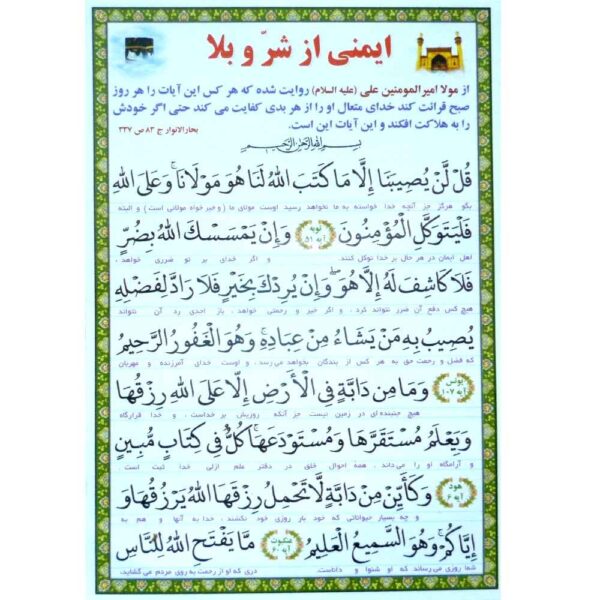 ایمنی از شرّ و بلا
از مولا امیرالمومنین علی (علیه السلام) روایت شده که هر کس این آیات را هر روز
صبح قرائت کند خدای متعال او را از هر بدی کفایت می کند حتی اگر خودش
را به هلاکت افکند و این آیات این است.
بحارالانوار ج ۸۳ ص ۳۳۷
بِسْمِ اللهِ الرَّحْمٰنِ الرَّحِيمِ
قُلْ لَنْ يُصِيبَنَا إِلَّا مَا كَتَبَ اللهُ لَنَا هُوَ مَوْلَانَا وَعَلَى اللهِ
بگو هرگز جز آنچه خدا خواسته به ما نخواهد رسید اوست مولای ما (و خیر خواه مولائی است) و البته
فَلْيَتَوَكَّلِ الْمُؤْمِنُونَ توبه آیه ۵۱ وَإِنْ يَمْسَسْكَ اللهُ بِضُرٍّ
اهل ایمان در هر حال بر خدا توکل کنند و اگر خدای بر تو ضرری خواهد،
فَلَا كَاشِفَ لَهُ إِلَّا هُوَ وَإِنْ يُرِدْكَ بِخَيْرٍ فَلَا رَادَّ لِفَضْلِهِ
هیچ کس دفع آن ضرر نتواند کرد، و اگر خیر و رحمتی خواهد، باز احدی رد آن نتواند
يُصِيبُ بِهِ مَنْ يَشَاءُ مِنْ عِبَادِهِ وَهُوَ الْغَفُورُ الرَّحِيمُ
که فضل و رحمت حق به هر کس از بندگان بخواهد می رسد، و اوست خدای آمرزنده و مهربان
یونس آیه ۱۰۷ وَمَا مِنْ دَابَّةٍ فِي الْأَرْضِ إِلَّا عَلَى اللهِ رِزْقُهَا
هیچ جنبنده ای در زمین نیست جز آنکه روزیش بر خداست، و خدا قرارگاه
وَيَعْلَمُ مُسْتَقَرَّهَا وَمُسْتَوْدَعَهَا كُلٌّ فِي كِتَابٍ مُبِينٍ
و آرامگاه او را می داند، همه احوال خلق در دفتر علم ازلی خدا ثبت است
هود آیه ۶ وَكَأَيِّنْ مِنْ دَابَّةٍ لَا تَحْمِلُ رِزْقَهَا اللهُ يَرْزُقُهَا وَ
و چه بسیار حیواناتی که خود بار روزی خود نکشند، خدا به آنها و هم به
إِيَّاكُمْ وَهُوَ السَّمِيعُ الْعَلِيمُ عنکبوت آیه ۶۰ مَا يَفْتَحِ اللهُ لِلنَّاسِ
شما روزی می رساند که او شنوا و داناست. دری که او از رحمت به روی مردم می گشاید،